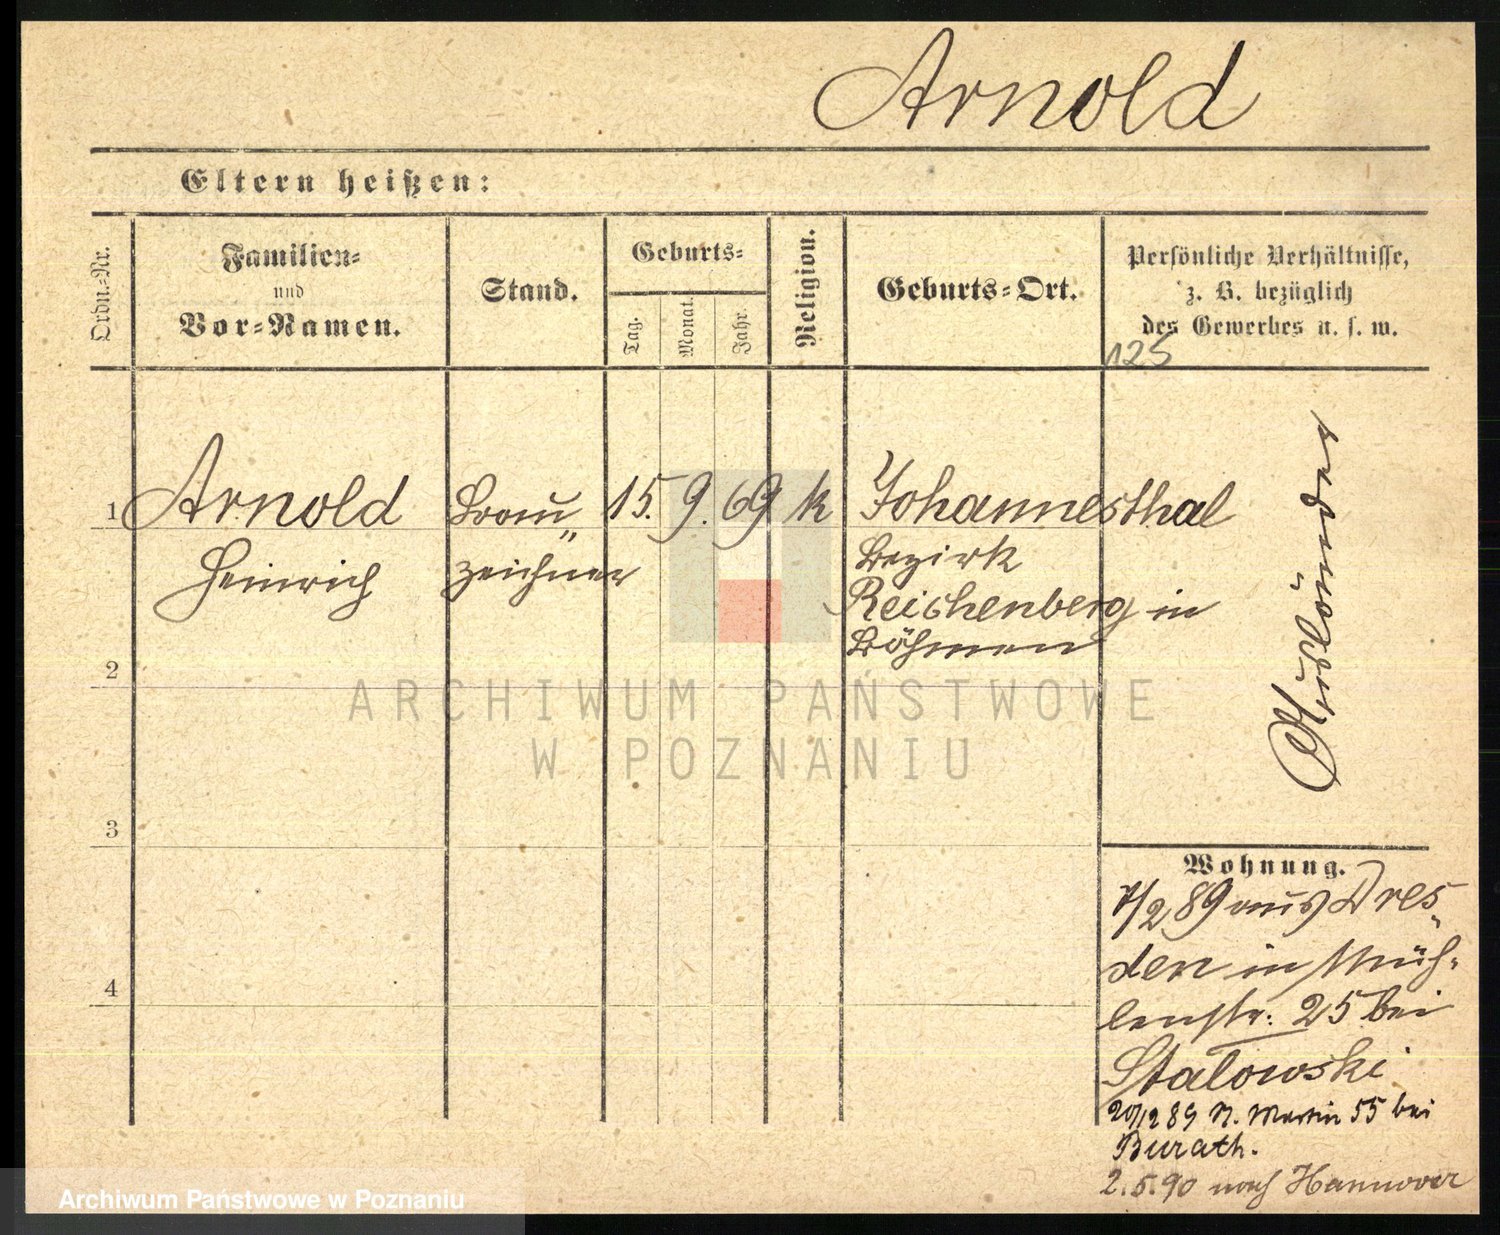 Arnold
Eltern heißen:
Ordn.-Nr.
Familien-
und
Vor-Namen.
Stand.
Geburts-
Tag.
Monat.
Jahr.
Religion.
Geburts-Ort.
Persönliche Verhältnisse,
z. B. bezüglich
des Gewerbes u. s. w.
125
1 Arnold Bau 15. 9. 69 k Johannesthal
Heinrich zeichner Bezirk
Reichenberg in
Böhmen
Ausländer
2
3
4
Wohnung.
7/2 89 aus Dres-
den in Müh-
lenstr: 25 bei
Stalowski
20/12 89 St. Martin 55 bei
Burath.
2.5.90 nach Hannover
ARCHIWUM PAŃSTWOWE
W POZNANIU
Archiwum Państwowe w Poznaniu